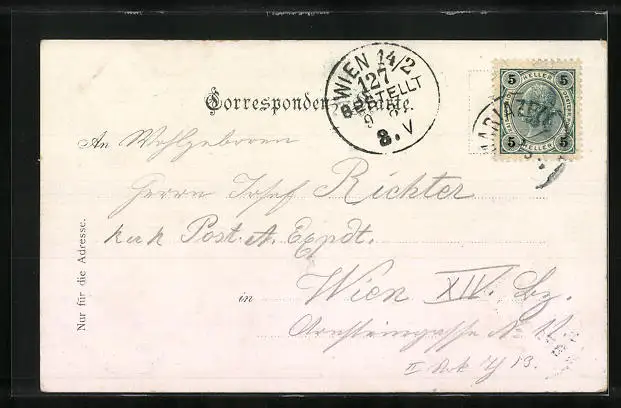 WIEN 14/2
127
BESTELLT
8. V
5 HELLER 5
5 HELLER 5
MARIAZELL
Correspondenz-Karte.
An Wohlgeboren
Herrn Josef Richter
k u k Post. A. Expdt.
in Wien XIV. Bz.
Arnsteingasse No 12
II Stock T 13.
Nur für die Adresse.